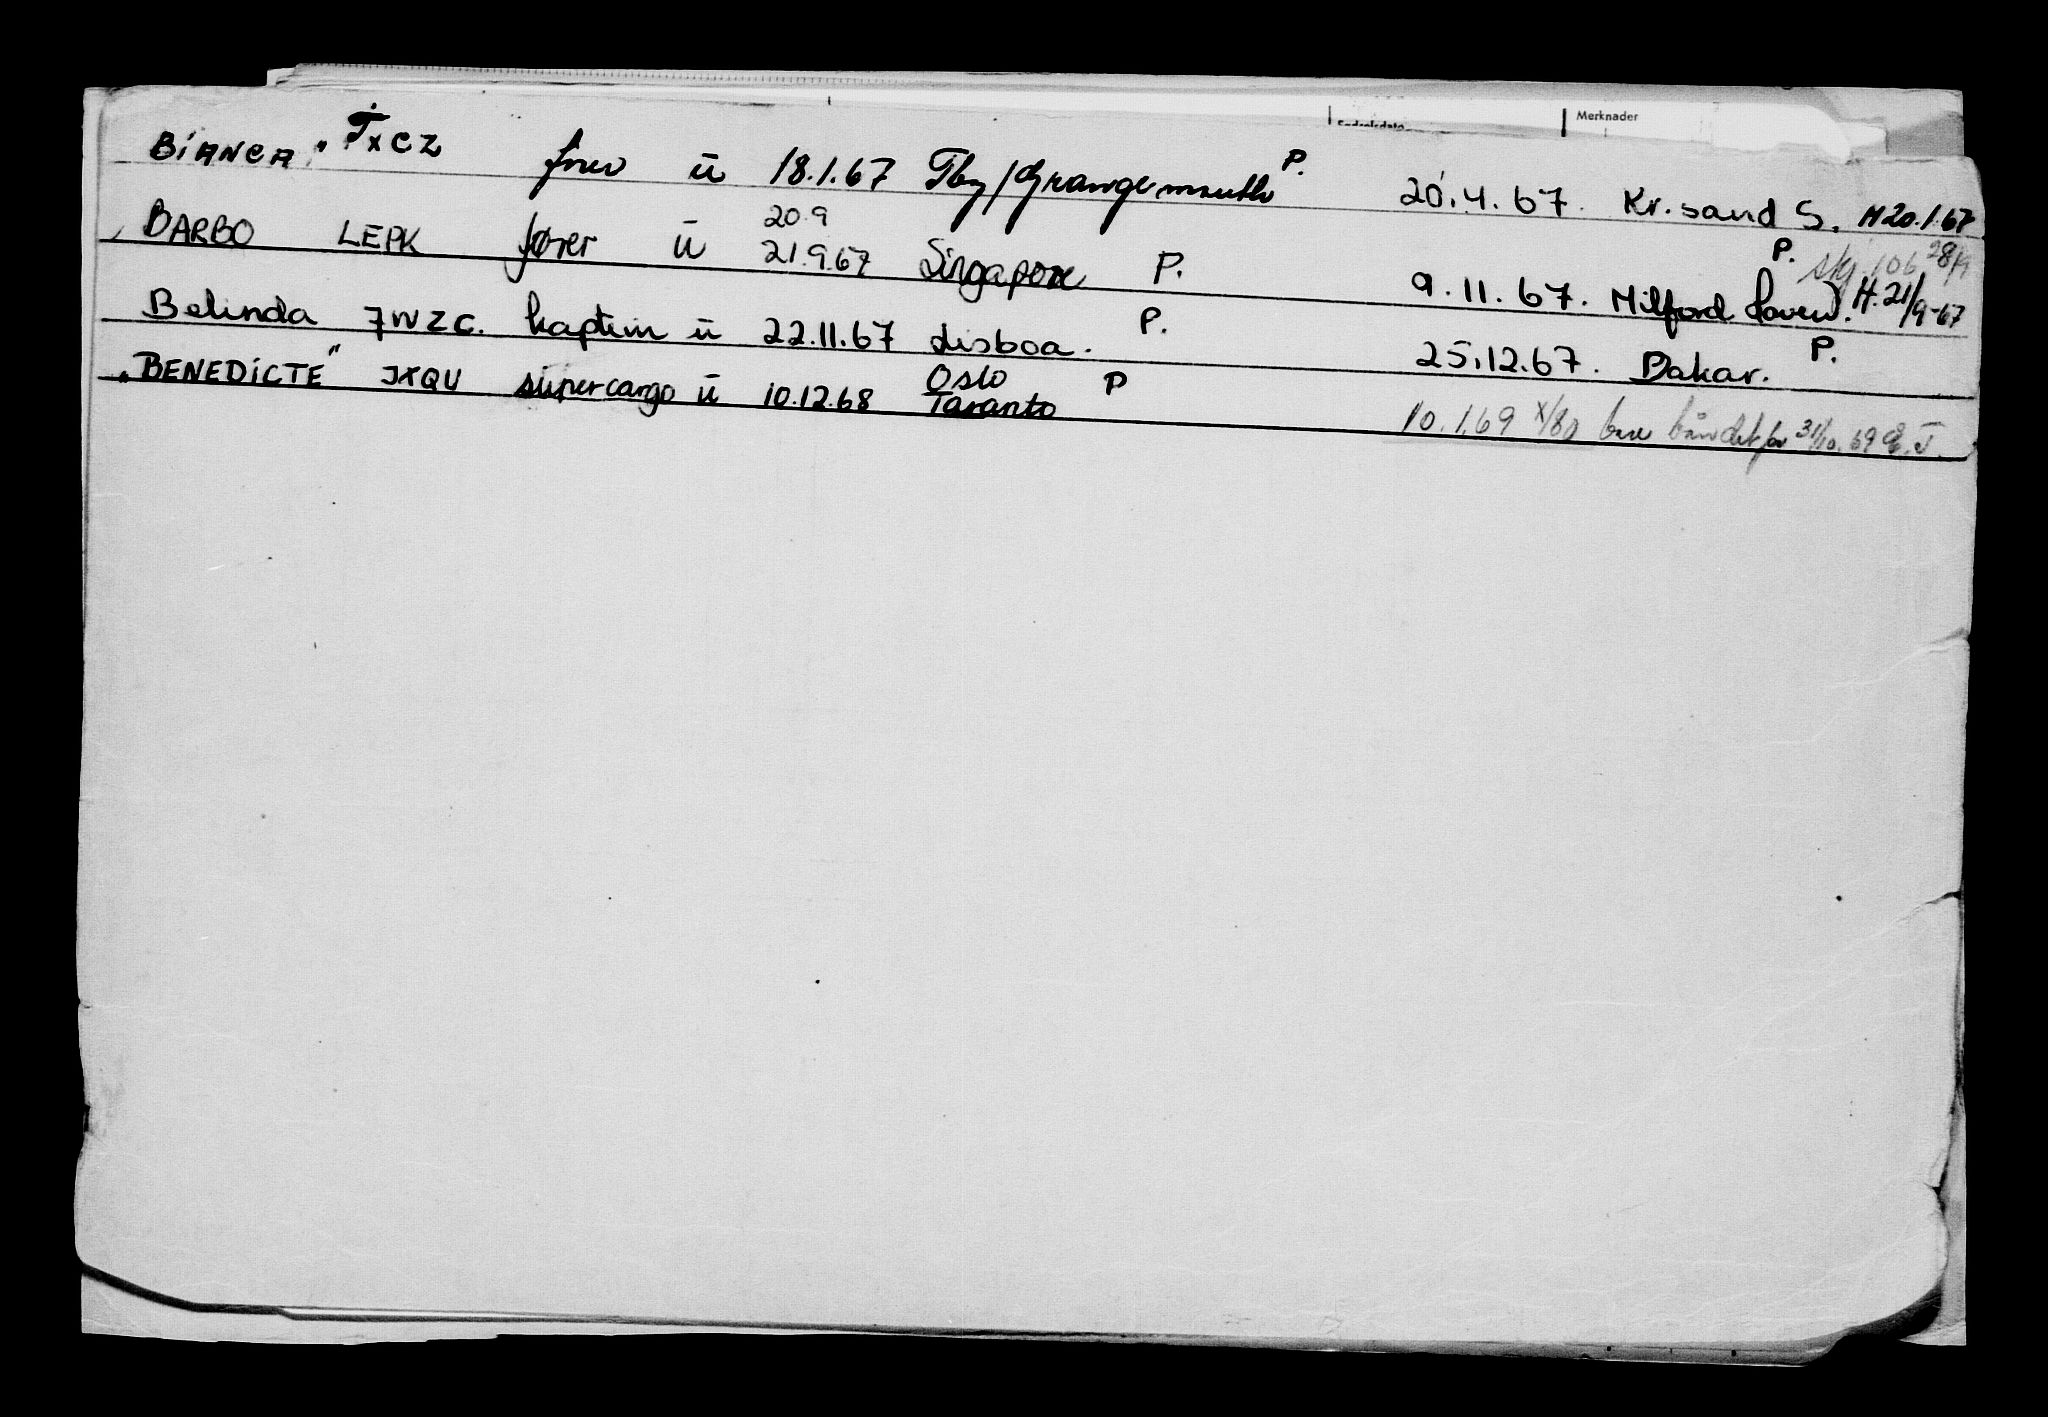 Merknader
BiANCA" TXCZ fører ū 18.1.67 Tbg/Grangemouth P. 20.4.67. Kr.sand S. H20.1.67
BARBO LEPK fører ū 20.9 21.9.67 Singapore P. 9.11.67. Milford Haven. P. skj. 106 28/9 H.21/9-67
Belinda JWZC. kaptein ū 22.11.67 Lisboa. P. 25.12.67. Dakar. P.
"BENEDiCTE" JXQU supercargo ū 10.12.68 Oslo Taranto P 10.1.69 bare båndet for 31/10.69